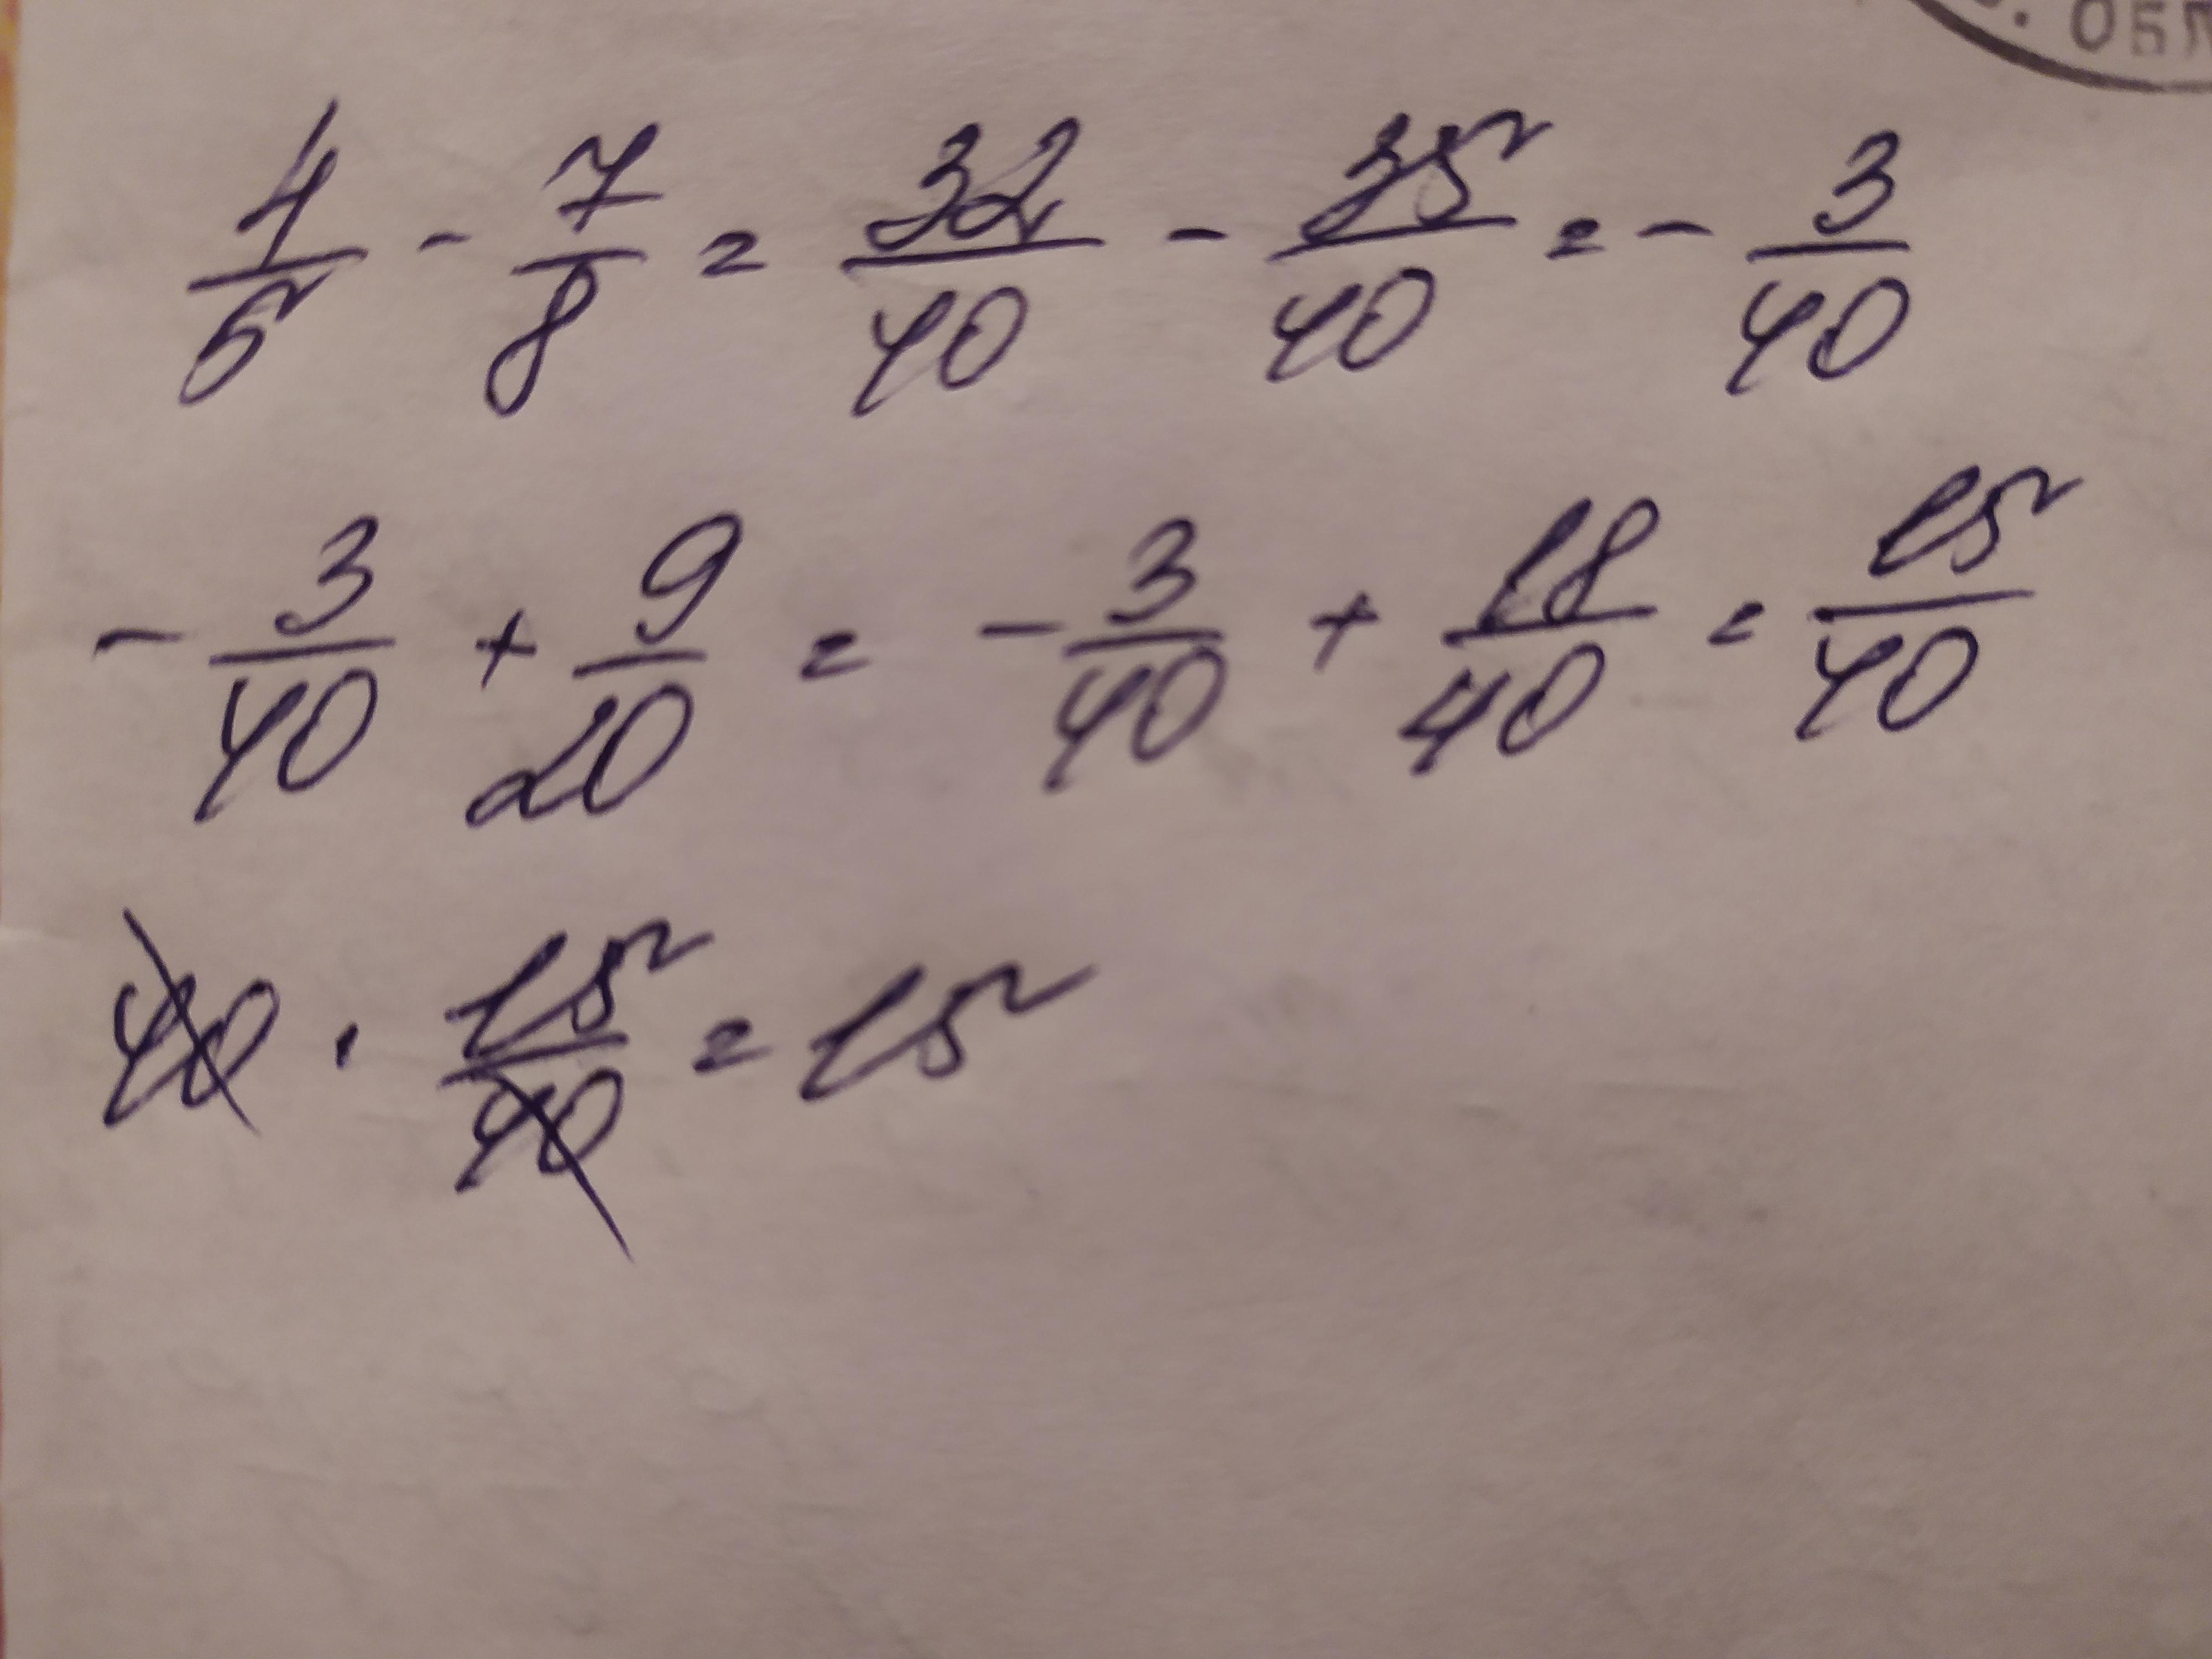 . ОБЛ
4/5 - 7/8 = 32/40 - 35/40 = - 3/40
- 3/40 + 9/20 = - 3/40 + 18/40 = 15/40
40 · 15/40 = 15